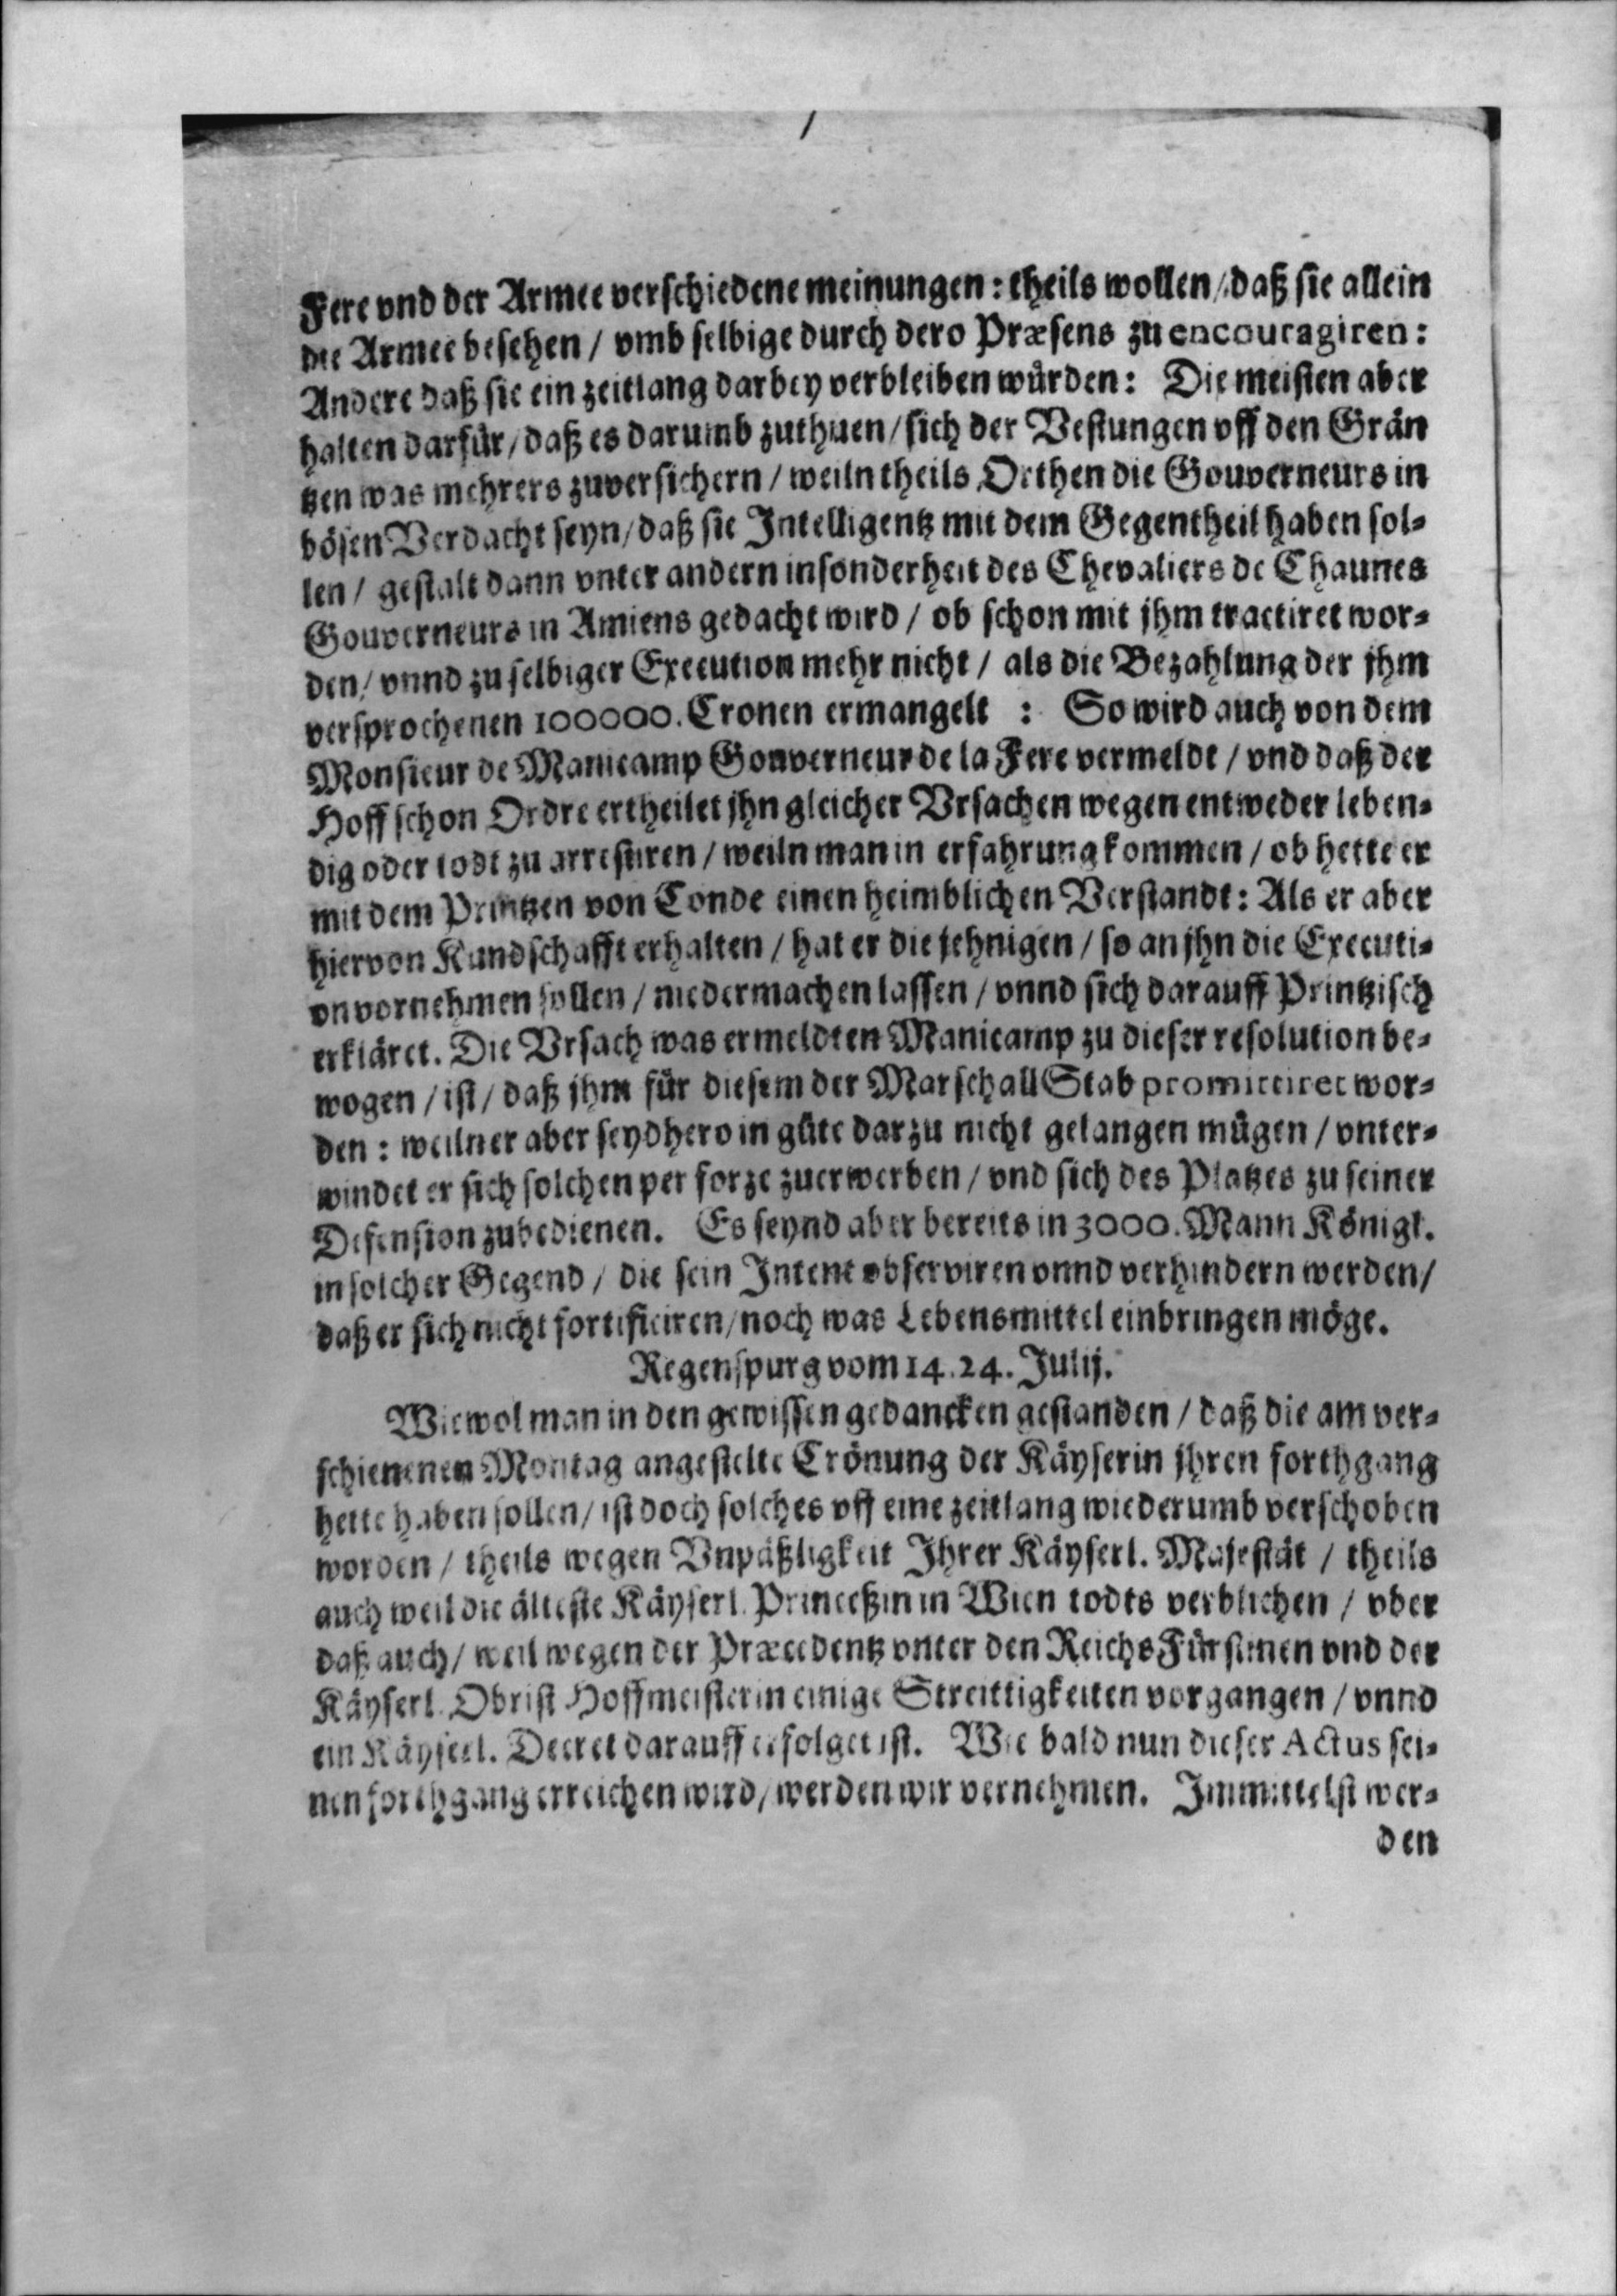 Fere vnd der Armee verschiedene meinungen: theils wollen/ daß sie allein
die Armee besehen / vmb selbige durch dero Præsens zu encouragiren:
Andere daß sie ein zeitlang darbey verbleiben würden: Die meisten aber
halten darfür/ daß es darumb zuthuen/ sich der Vestungen vff den Grän
tzen was mehrers zuversichern / weiln theils Orthen die Gouverneurs in
bösen Verdacht seyn/ daß sie Intelligentz mit dem Gegentheil haben sol-
len / gestalt dann vnter andern insonderheit des Chevaliers de Chaunes
Gouverneurs in Amiens gedacht wird / ob schon mit jhm tractiret wor-
den/ vnnd zu selbiger Execution mehr nicht / als die Bezahlung der jhm
versprochenen 100000. Cronen ermangelt : So wird auch von dem
Monsieur de Manicamp Gouverneur de la Fere vermeldt / vnd daß der
Hoff schon Ordre ertheilet jhn gleicher Vrsachen wegen entweder leben-
dig oder todt zu arrestiren / weiln man in erfahrung kommen / ob hette er
mit dem Printzen von Conde einen heimblichen Verstandt: Als er aber
hiervon Kundschafft erhalten / hat er die jehnigen / so an jhn die Executi-
on vornehmen sollen / niedermachen lassen / vnnd sich darauff Printzisch
erkläret. Die Vrsach was ermeldten Manicamp zu dieser resolution be-
wogen / ist / daß jhm für diesem der Marschall Stab promittiret wor-
den : weilner aber seydhero in güte darzu nicht gelangen mügen / vnter-
windet er sich solchen per forze zuerwerben / vnd sich des Platzes zu seiner
Defension zubedienen. Es seynd aber bereits in 3000. Mann Königl.
in solcher Gegend / die sein Intent observiren vnnd verhindern werden/
daß er sich nicht fortificiren/ noch was Lebensmittel einbringen möge.
Regenspurg vom 14. 24. Julij.
Wiewol man in den gewissen gedancken gestanden / daß die am ver-
schienenen Montag angestelte Crönung der Käyserin jhren forthgang
hette haben sollen/ ist doch solches vff eine zeitlang wiederumb verschoben
worden / theils wegen Vnpäßligkeit Ihrer Käyserl. Majestät / theils
auch weil die älteste Käyserl. Princeßin in Wien todts verblichen / vber
daß auch/ weil wegen der Præcedentz vnter den Reichs Fürstinen vnd der
Käyserl. Obrist Hoffmeisterin einige Streittigkeiten vorgangen / vnnd
ein Käyserl. Decret darauff erfolget ist. Wie bald nun dieser Actus sei-
nen forthgang erreichen wird/ werden wir vernehmen. Immittelst wer-
den